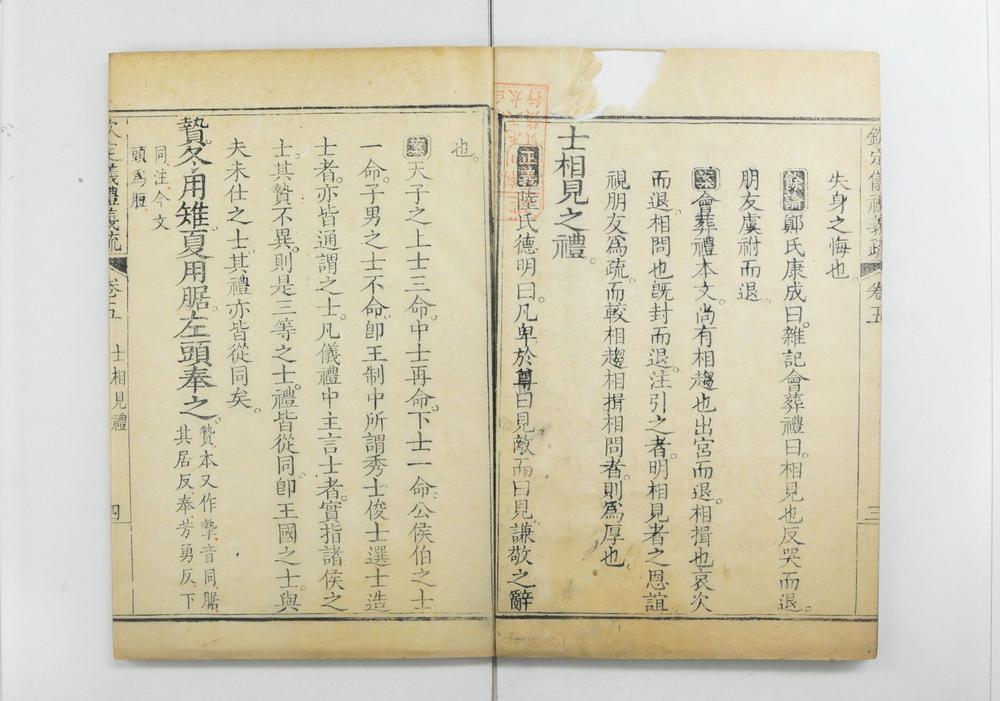 欽定儀禮義疏 卷五 三
失身之悔也
餘論鄭氏康成曰雜記會葬禮曰相見也反哭而退
朋友虞祔而退
案會葬禮本文尚有相趨也出宮而退相揖也哀次
而退相問也旣封而退注引之者明相見者之恩誼
視朋友爲疏而較相趨相揖相問者則爲厚也
士相見之禮
正義陸氏德明曰凡卑於尊曰見敵而曰見謙敬之辭
也
案天子之上士三命中士再命下士一命公侯伯之士
一命子男之士不命卽王制中所謂秀士俊士選士造
士者亦皆通謂之士凡儀禮中主言士者實指諸侯之
士其贄不異則是三等之士禮皆從同卽王國之士與
夫未仕之士其禮亦皆從同矣
贄冬用雉夏用腒左頭奉之贄本又作摯音同腒
其居反奉芳勇反下
同注今文
頭爲脰
欽定儀禮義疏 卷五 士相見禮 四